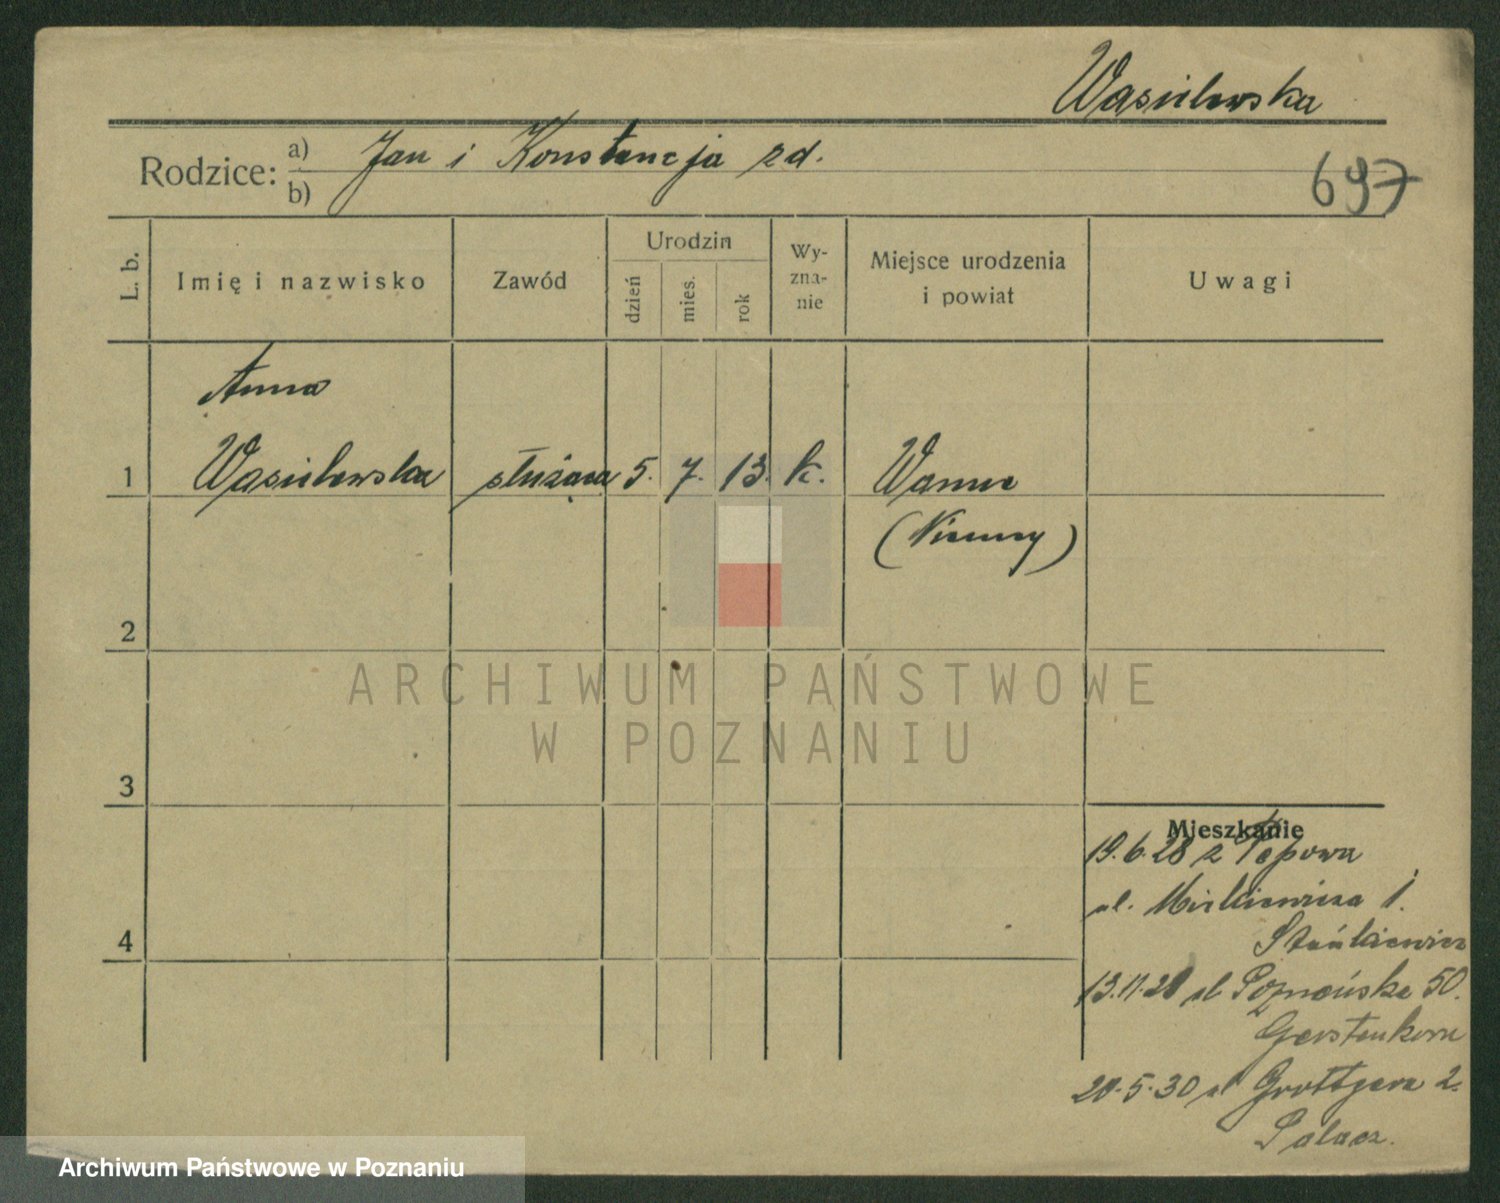 Wasielewska
Rodzice: a) Jan i Konstancja zd.
b)
697
L. b.
Imię i nazwisko
Zawód
Urodzin
dzień
mies.
rok
Wy-
zna-
nie
Miejsce urodzenia
i powiat
Uwagi
Anna
1 Wasielewska służąca 5. 7. 13. k. Wanne
(Niemcy)
2
3
4
ARCHIWUM PAŃSTWOWE
W POZNANIU
Mieszkanie
19.6.28 z
ul. Mickiewicza 1.
Stańkiewicz
13.11.28 ul Poznańska 50.
Gerstenkorn
20.5.30 ul Grottgera 2.
Palacz.
Archiwum Państwowe w Poznaniu